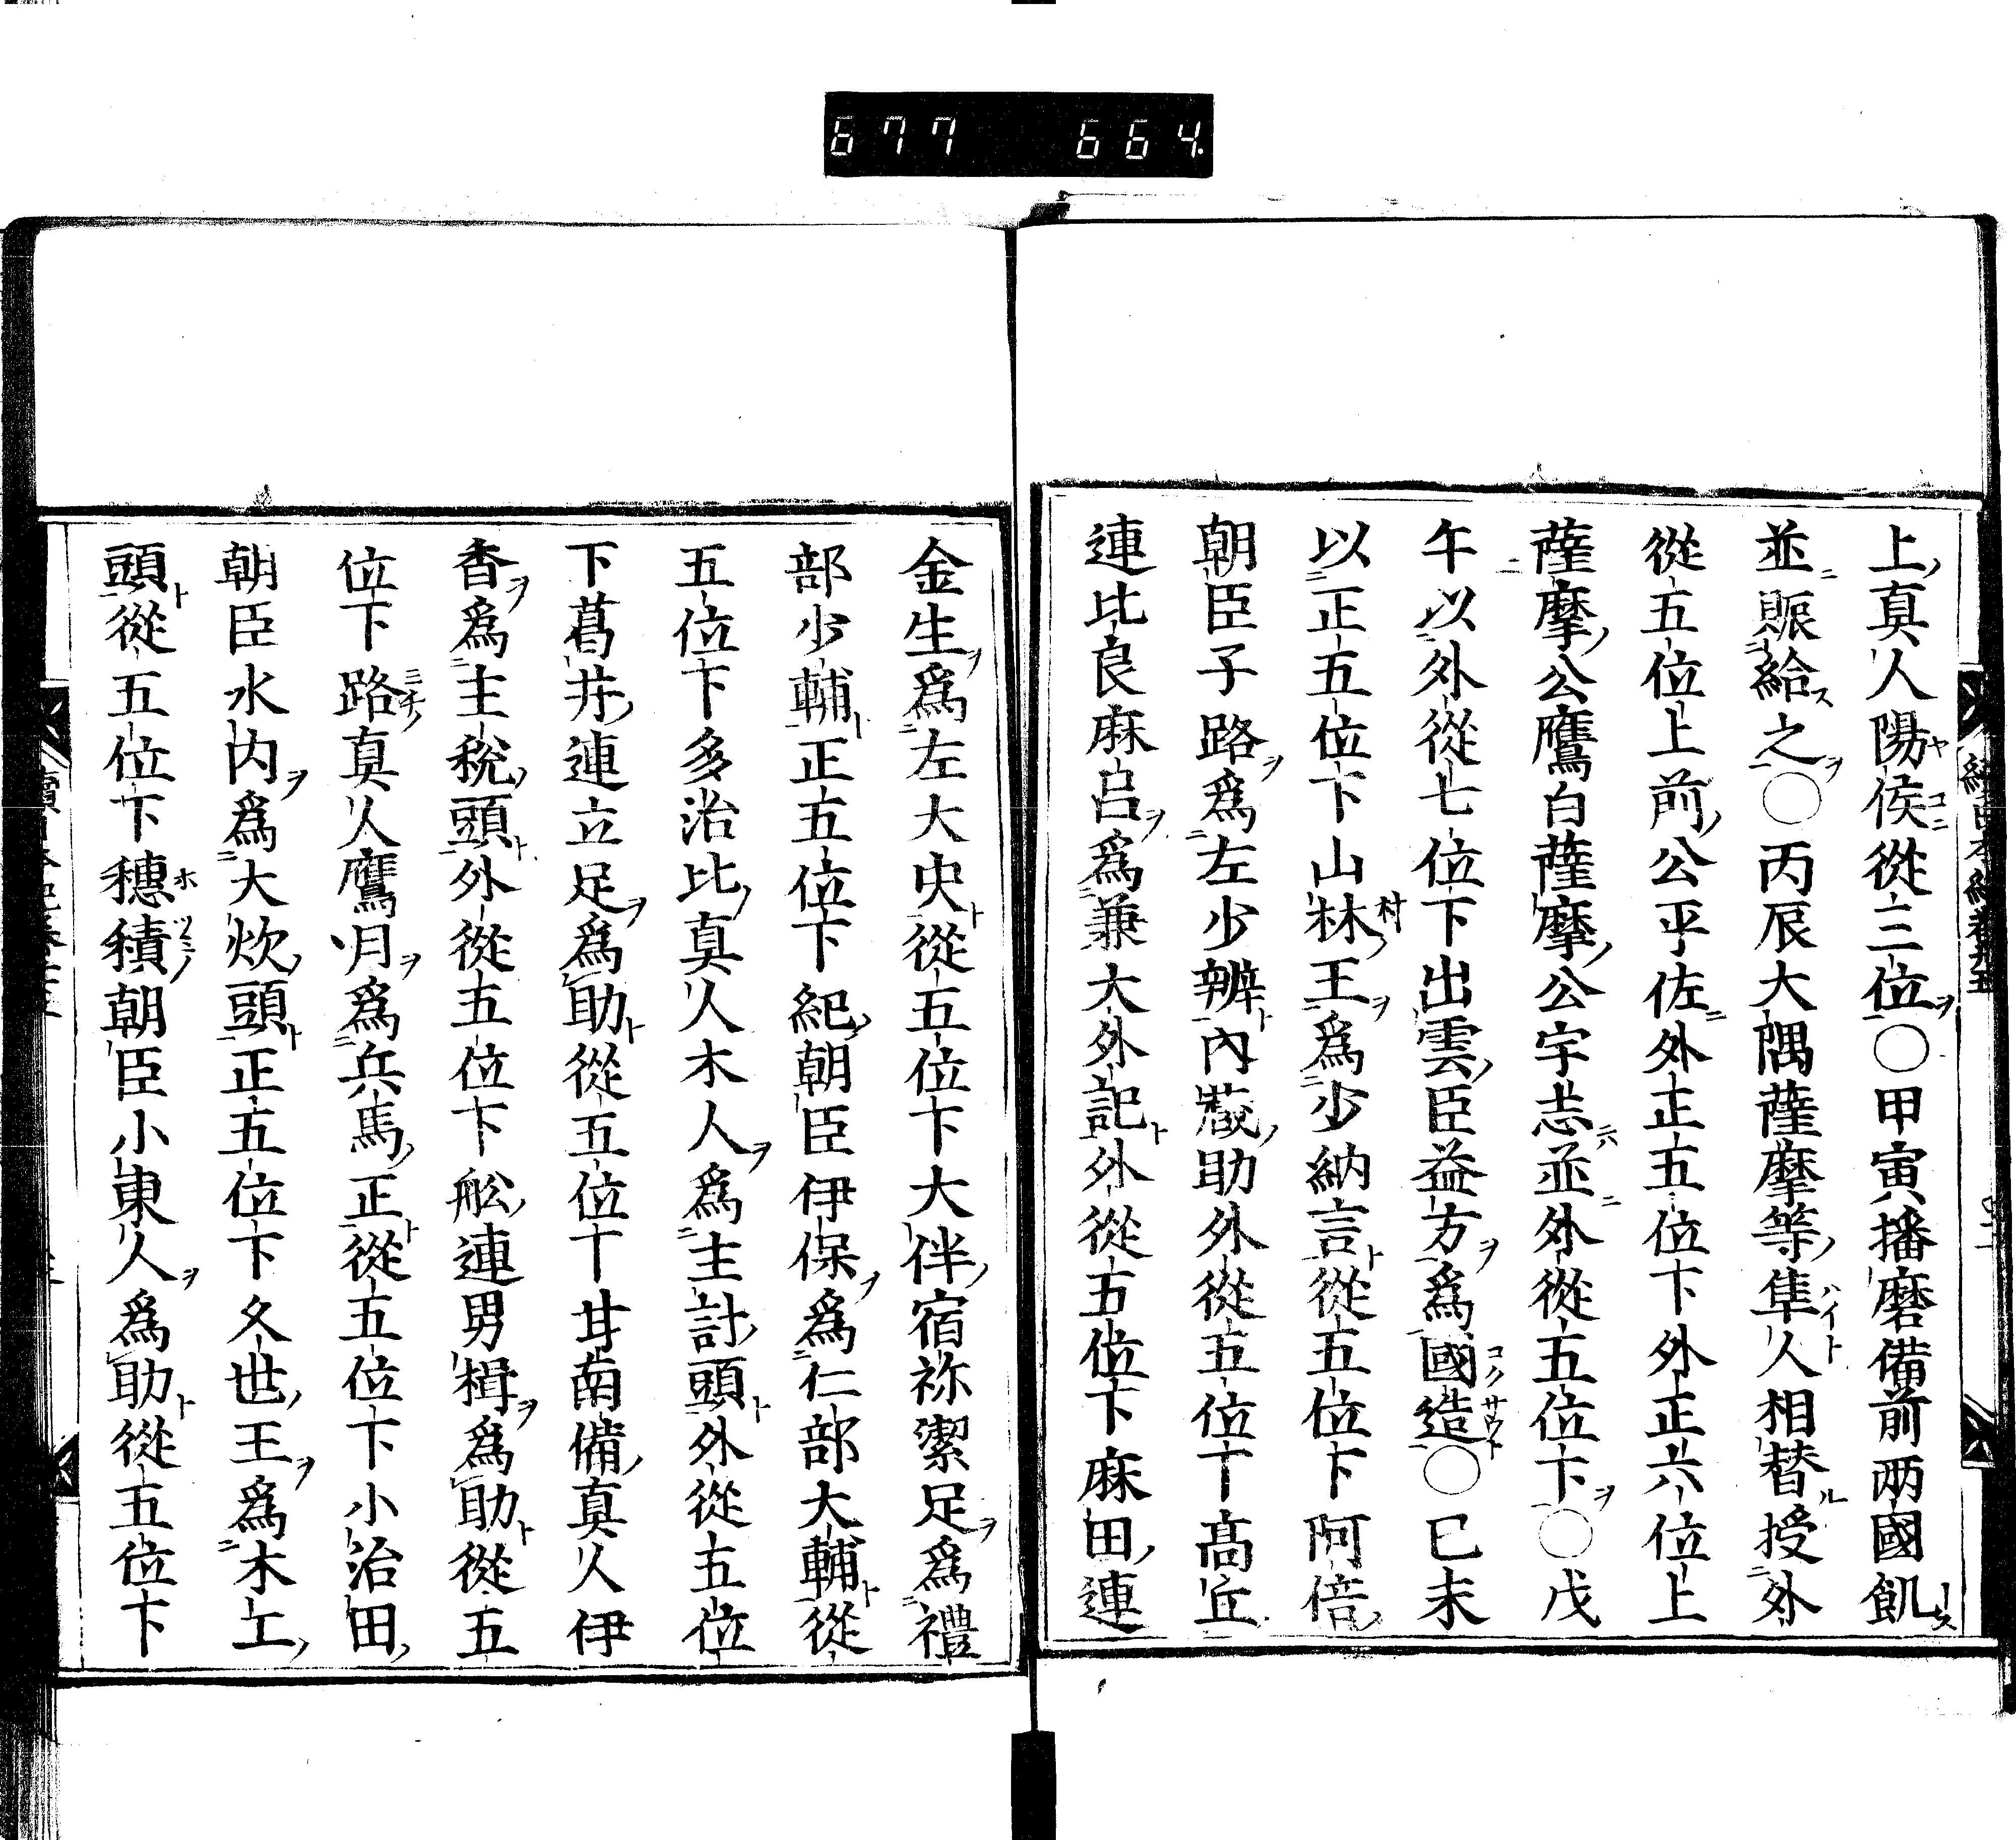 677 664
上真人陽侯從三位○甲寅播磨備前兩國飢
並賑給之○丙辰大隅薩摩等隼人相替授外
從五位上前公乎佐外正五位下外正六位上
薩摩公鷹白薩摩公宇志並外從五位下○戊
午以外從七位下出雲臣益方爲國造○巳未
以正五位下山林王爲少納言從五位下阿倍
朝臣子路爲左少辨內藏助外從五位下髙丘
連比良麻呂爲兼大外記外從五位下麻田連
金生爲左大史從五位下大伴宿祢潔足爲禮
部少輔正五位下紀朝臣伊保爲仁部大輔從
五位下多治比真人木人爲主計頭外從五位
下葛井連立足爲助從五位下甘南備真人伊
香爲主稅頭外從五位下舩連男楫爲助從五
位下路真人鷹月爲兵馬正從五位下小治田
朝臣水內爲大炊頭正五位下久世王爲木工
頭從五位下穗積朝臣小東人爲助從五位下